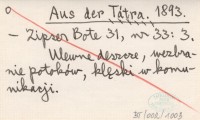 Aus der Tátra. 1893.
- Zipser Bote 31, nr 33: 3.
Ulewne deszcze, wezbra-
nie potoków, klęski w komu-
nikacji.
35/002/1003